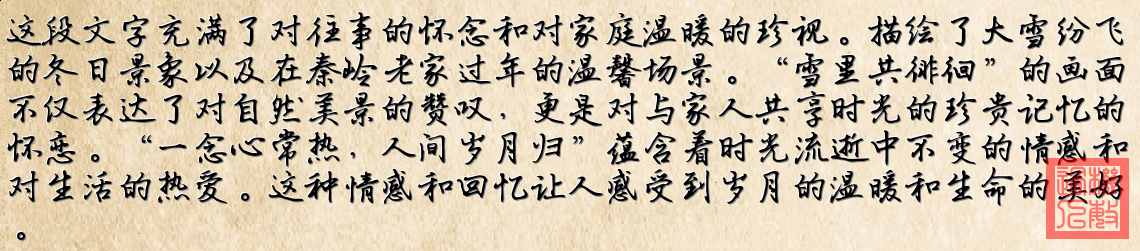 这段文字充满了对往事的怀念和对家庭温暖的珍视。描绘了大雪纷飞
的冬日景象以及在秦岭老家过年的温馨场景。“雪里共徘徊”的画面
不仅表达了对自然美景的赞叹，更是对与家人共享时光的珍贵记忆的
怀恋。“一念心常热，人间岁月归”蕴含着时光流逝中不变的情感和
对生活的热爱。这种情感和回忆让人感受到岁月的温暖和生命的美好
。